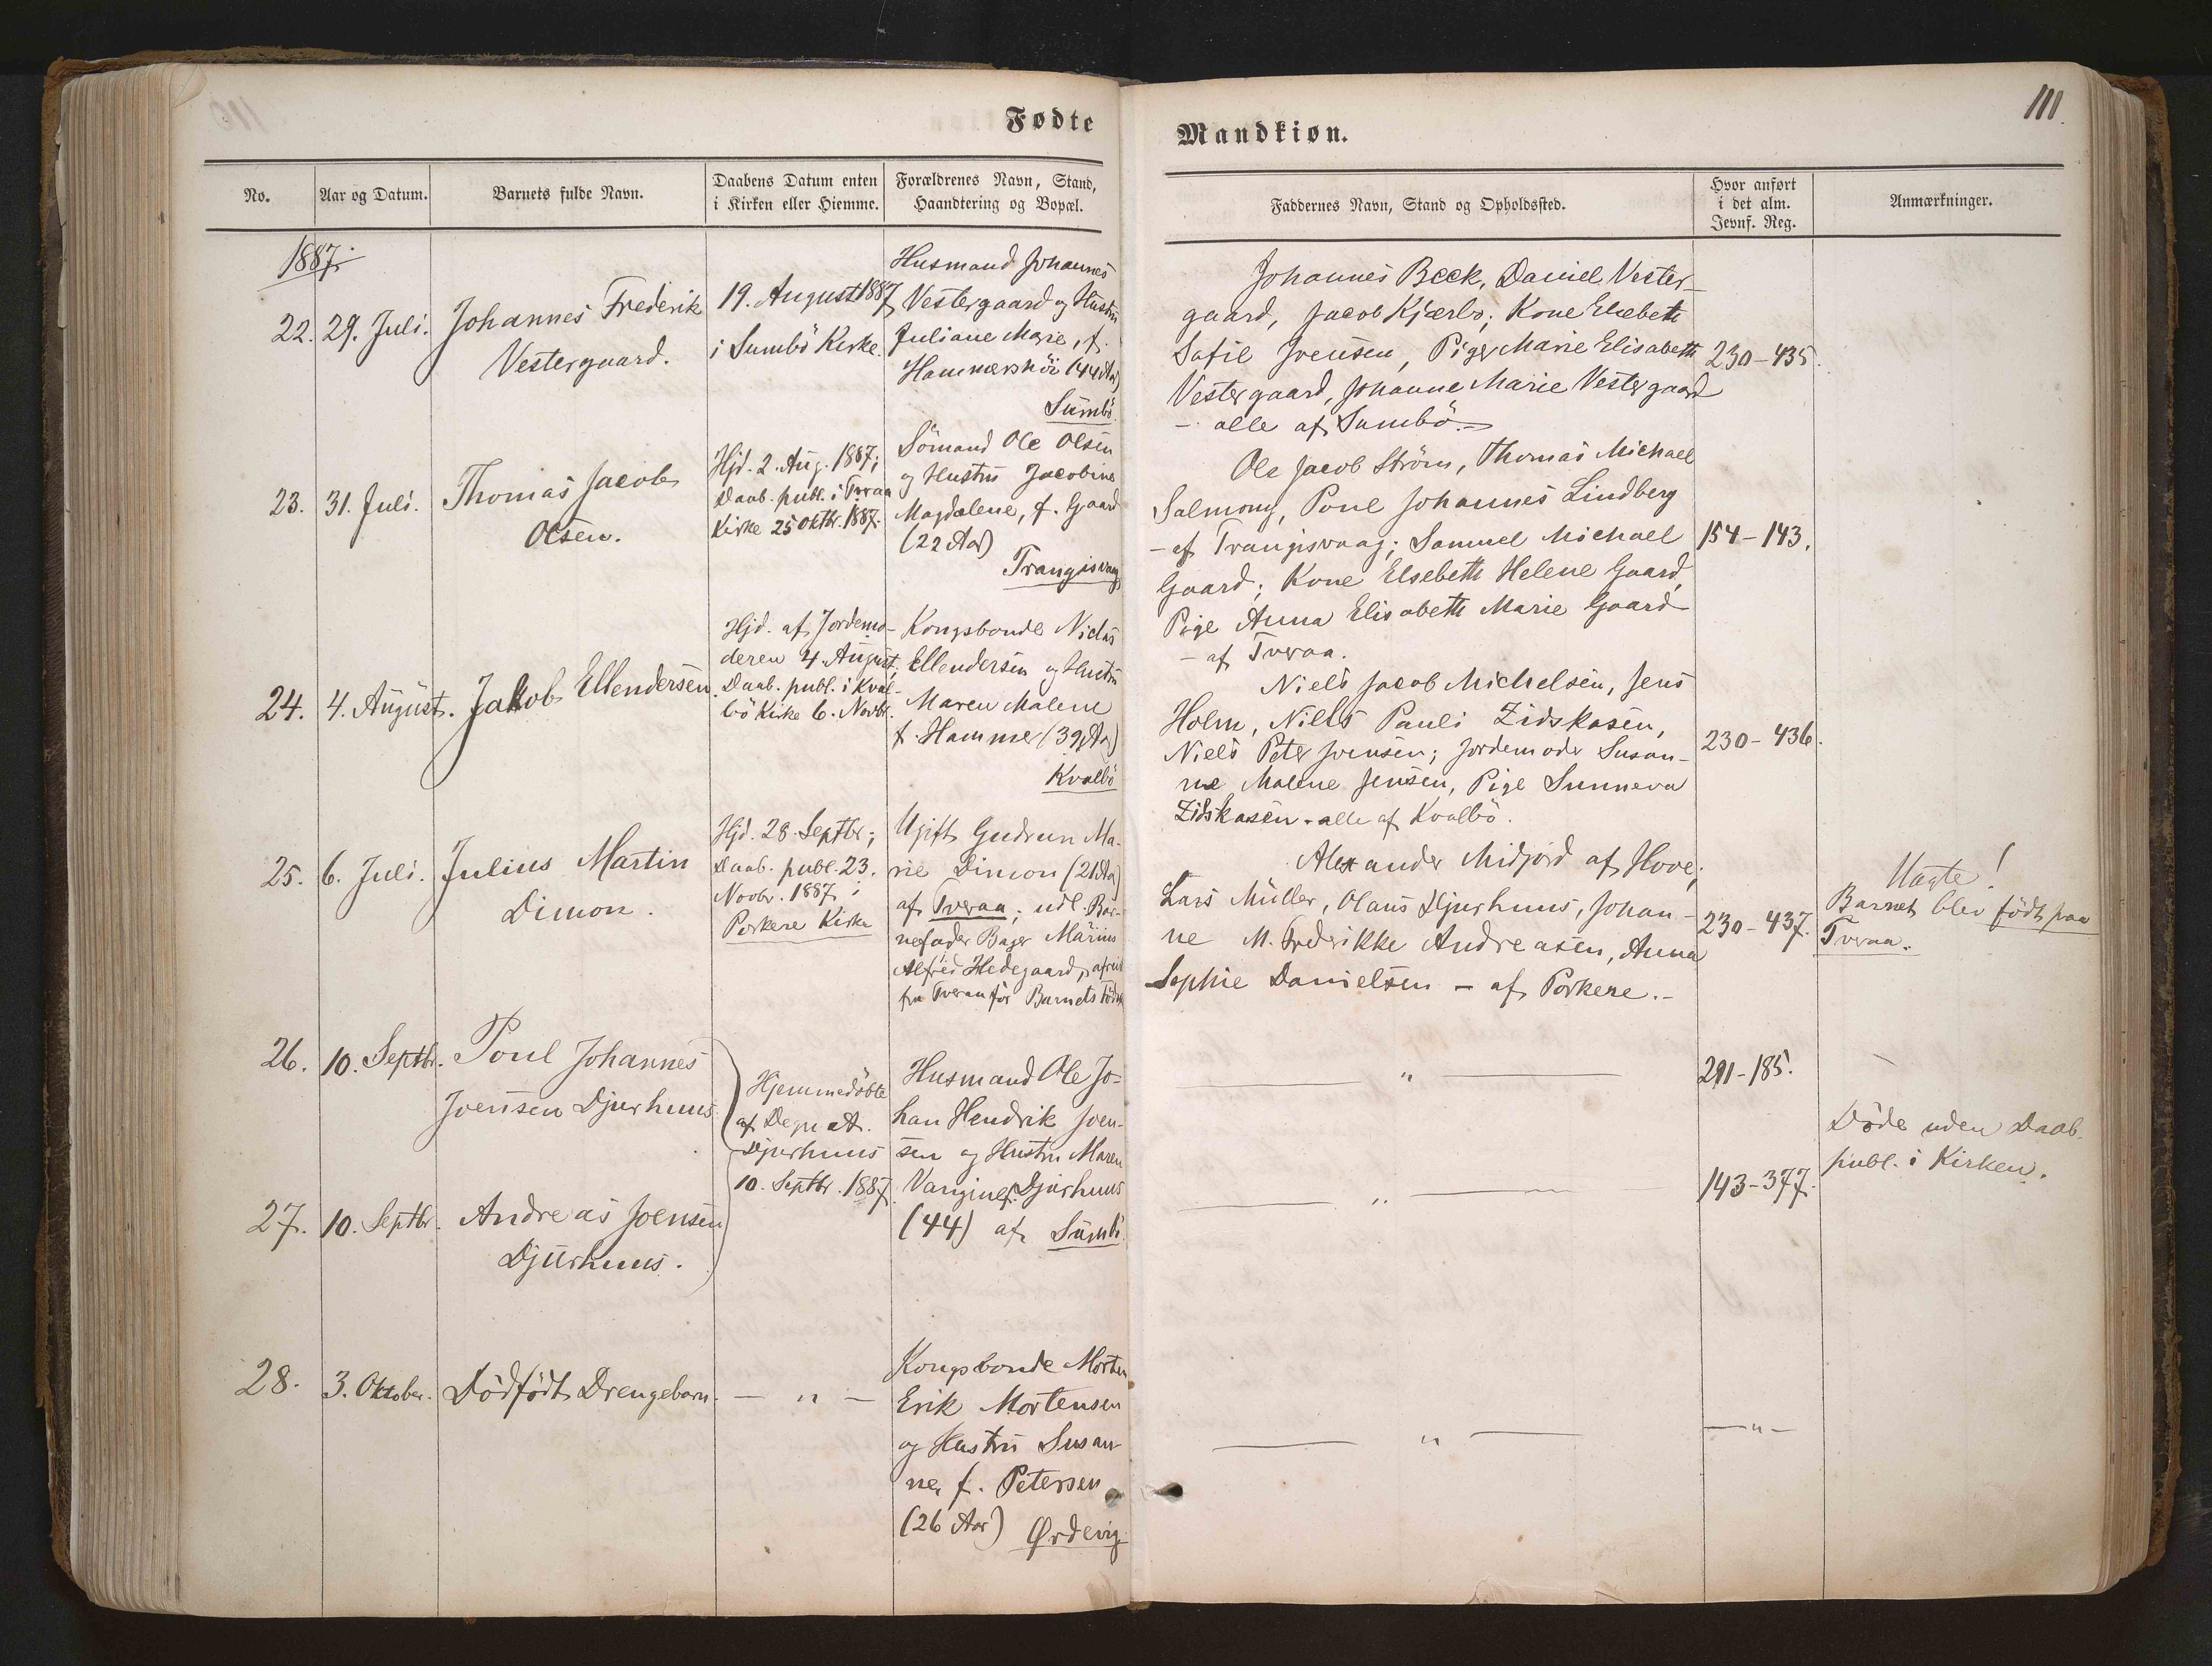 Fødte
No.
Aar og Datum.
Barnets fulde Navn.
Daabens Datum enten
i Kirken eller Hiemme.
Forældrenes Navn, Stand,
Haandtering og Bopæl.
1887.
22.
29. Juli.
Johannes Frederik
Vestergaard.
19. August 1887
i Sumbö Kirke.
Husmand Johannes
Vestergaard og Hustru
Juliane Marie, f.
Hammershöi (44 Aar)
Sumbö.
23.
31. Juli.
Thomas Jacob
Olsen.
Hjd. 2. Aug. 1887;
Daab. publ. i Tveraa
Kirke 25 Oktbr. 1887.
Sömand Ole Olsen
og Hustru Jacobine
Magdalene, f. Gaard
(22 Aar)
Trangisvaag
24.
4. August.
Jakob Ellendersen.
Hjd. af Jordemo-
deren 4. August;
Daab. publ. i Kval-
bö Kirke 6. Novbr.
Kongsbonde Niclas
Ellendersen og Hustru
Maren Malene
f. Hammer (39 Aar)
Kvalbö
25.
6. Juli.
Julius Martin
Dimon.
Hjd. 28. Septbr.;
Daab. publ. 23.
Novbr. 1887 i
Porkere Kirke
Ugift Gudrun Ma-
rie Dimon (21 Aar)
af Tveraa; udl. Bar-
nefader Bager Marius
Alfred Hedegaard, afreist
fra Tveraa för Barnets Födsel
26.
10. Septbr.
Poul Johannes
Joensen Djurhuus
Hjemmedöbte
af Degn A.
Djurhuus
10. Septbr. 1887.
Husmand Ole Jo-
han Hendrik Joen-
sen og Hustru Maren
Vangine f. Djurhuus
(44) af Sumbö.
27.
10. Septbr.
Andreas Joensen
Djurhuus.
28.
3. Oktober.
Dödfödt Drengebarn.
— " —
Kongsbonde Morten
Erik Mortensen
og Hustru Susan-
ne, f. Petersen
(26 Aar) Ørdevig
111.
Mandkiøn.
Faddernes Navn, Stand og Opholdssted.
Hvor anført
i det alm.
Jevnf. Reg.
Anmærkninger.
Johannes Beck, Daniel Vester-
gaard, Jacob Kjærbo; Kone Elsebeth
Sofie Joensen, Piger Marie Elisabeth
Vestergaard, Johanne Marie Vestergaard
- alle af Sumbö.-
230-435.
Ole Jacob Ström, Thomas Michael
Salmony, Poul Johannes Lindberg
- af Trangisvaag; Samuel Michael
Gaard; Kone Elsebeth Helene Gaard,
Pige Anna Elisabeth Marie Gaard
- af Tveraa.
154-143.
Niels Jacob Michelsen, Jens
Holm, Niels Pauli Zidskasen,
Niels Peter Joensen; Jordemoder Susan-
ne Malene Jensen, Pige Sunneva
Zidskasen - alle af Kvalbö.
230-436.
Alexander Midjord af Hove;
Lars Müller, Olaus Djurhuus, Johan-
ne M. Frederikke Andreasen, Anna
Sophie Danielsen - af Porkere.-
230-437.
Uægte!
Barnet blev födt paa
Tveraa.
— " —
291-185.
Döde uden Daab.
publ. i Kirken.
— " —
143-377.
— " —
— " —